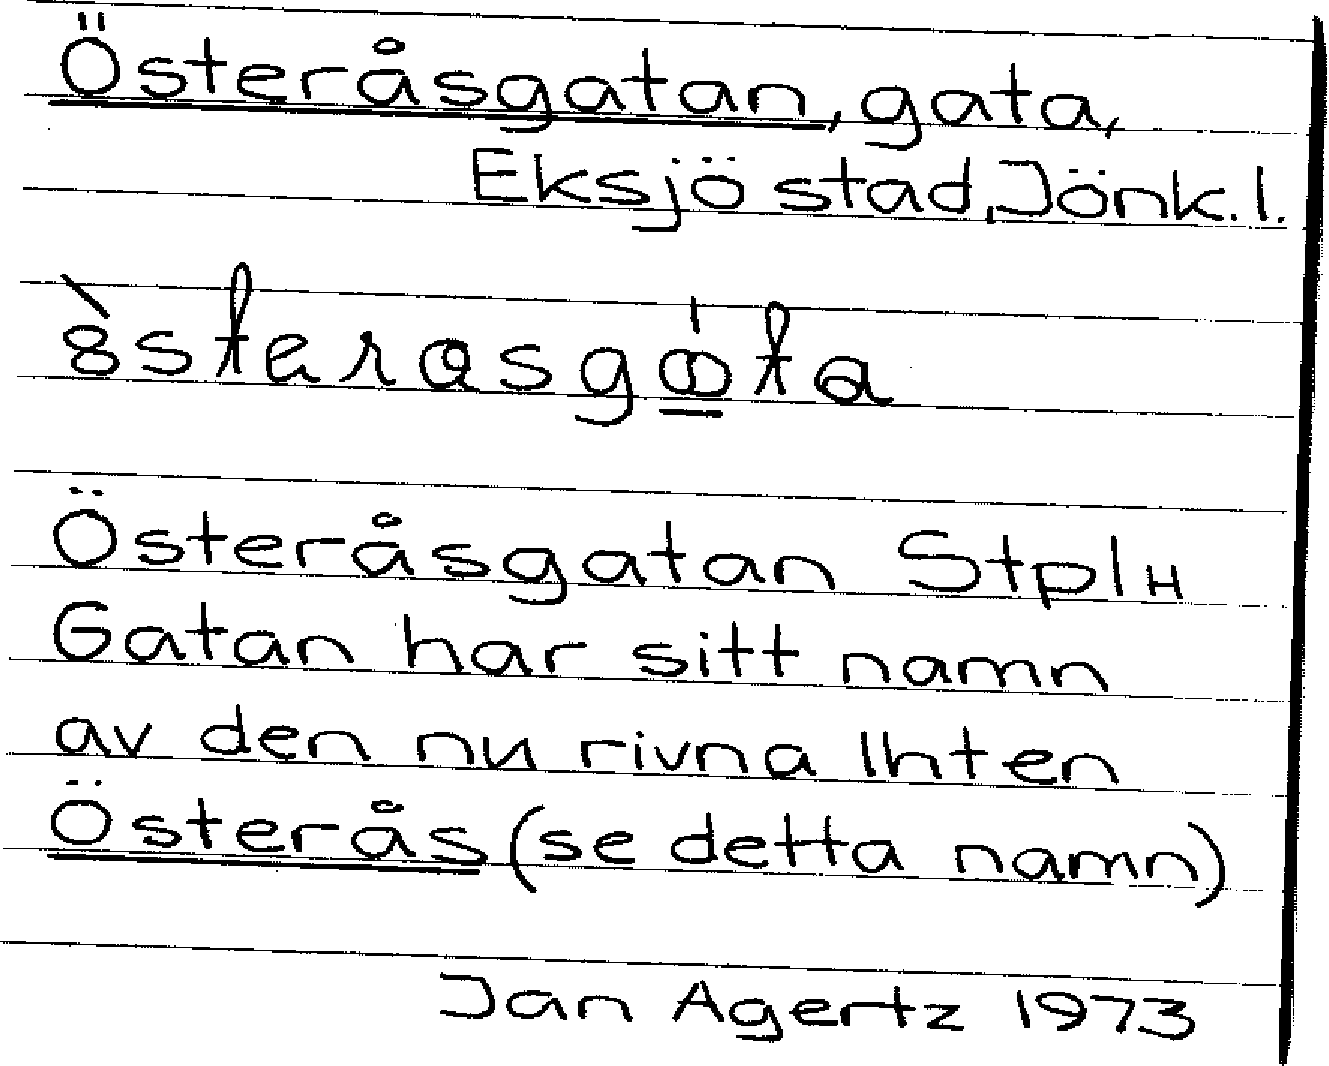 Österåsgatan, gata,
Eksjö stad, Jönk. l.
Österåsgatan Stpl H
Gatan har sitt namn
av den nu rivna lhten
Österås (se detta namn)
Jan Agertz 1973